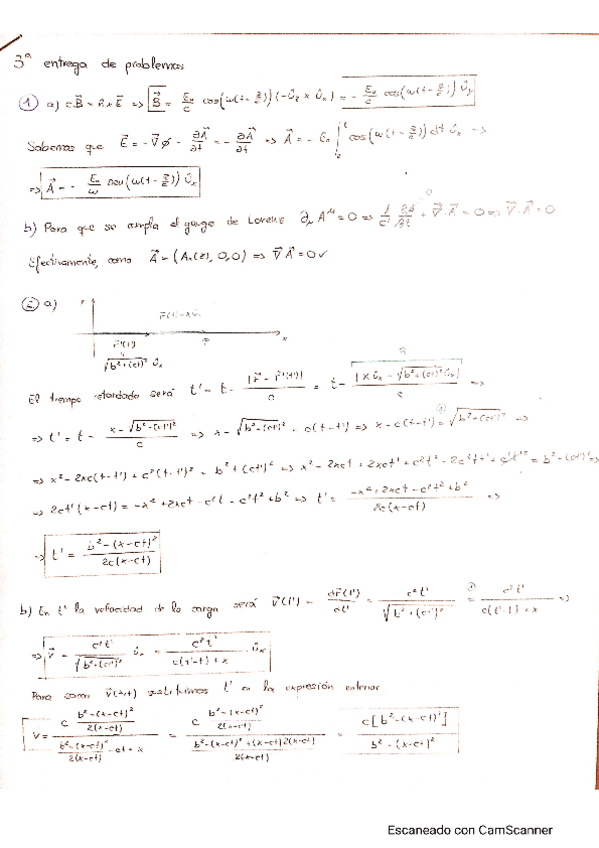 3ª entrega de problemas
① a) cB⃗ = n̂ × E⃗ ⇒ B⃗ = E₀/c cos(ω(t - z/c)) (-û_z × û_x) = - E₀/c cos(ω(t - z/c)) û_y
Sabemos que E⃗ = -∇⃗φ - ∂A⃗/∂t = - ∂A⃗/∂t ⇒ A⃗ = - E₀ ∫ cos(ω(t - z/c)) dt û_x ⇒
⇒ A⃗ = - E₀/ω sen(ω(t - z/c)) û_x
b) Para que se cumpla el gauge de Lorenz ∂_μ A^μ = 0 ⇒ 1/c² ∂φ/∂t + ∇⃗·A⃗ = 0 ⇒ ∇⃗·A⃗ = 0
Efectivamente, como A⃗ = (Aₓ(z), 0, 0) ⇒ ∇⃗A⃗ = 0 ✓
② a)
r⃗(t) = x û_x
x
r⃗'(t')
√(b² + (ct')²) û_x
El tiempo retardado será t' = t - |r⃗ - r⃗'(t')|/c = t - |x û_x - √(b² + (ct')²) û_x|/c ⇒
⇒ t' = t - (x - √(b² + (ct')²))/c ⇒ x - √(b² + (ct')²) = c(t - t') ⇒ x - c(t - t') = √(b² + (ct')²) ⇒
⇒ x² - 2xc(t - t') + c²(t - t')² = b² + (ct')² ⇒ x² - 2xct + 2xct' + c²t² - 2c²tt' + c²t'² = b² + (ct')² ⇒
⇒ 2ct'(x - ct) = -x² + 2xct - c²t² + b² ⇒ t' = (-x² + 2xct - c²t² + b²)/(2c(x - ct)) ⇒
⇒ t' = (b² - (x - ct)²)/(2c(x - ct))
b) En t' la velocidad de la carga será v⃗(t') = dr⃗'(t')/dt' = c²t'/√(b² + (ct')²) = c²t'/(c(t' - t) + x) ⇒
⇒ v⃗ = c²t'/√(b² + (ct')²) û_x = c²t'/(c(t' - t) + x) û_x
Para sacar v⃗(x,t) sustituimos t' en la expresión anterior
v = (c (b² - (x - ct)²)/(2(x - ct)))/((b² - (x - ct)²)/(2(x - ct)) - ct + x) = (c (b² - (x - ct)²)/(2(x - ct)))/((b² - (x - ct)² + (x - ct)2(x - ct))/(2(x - ct))) = c[b² - (x - ct)²]/(b² + (x - ct)²)
Escaneado con CamScanner